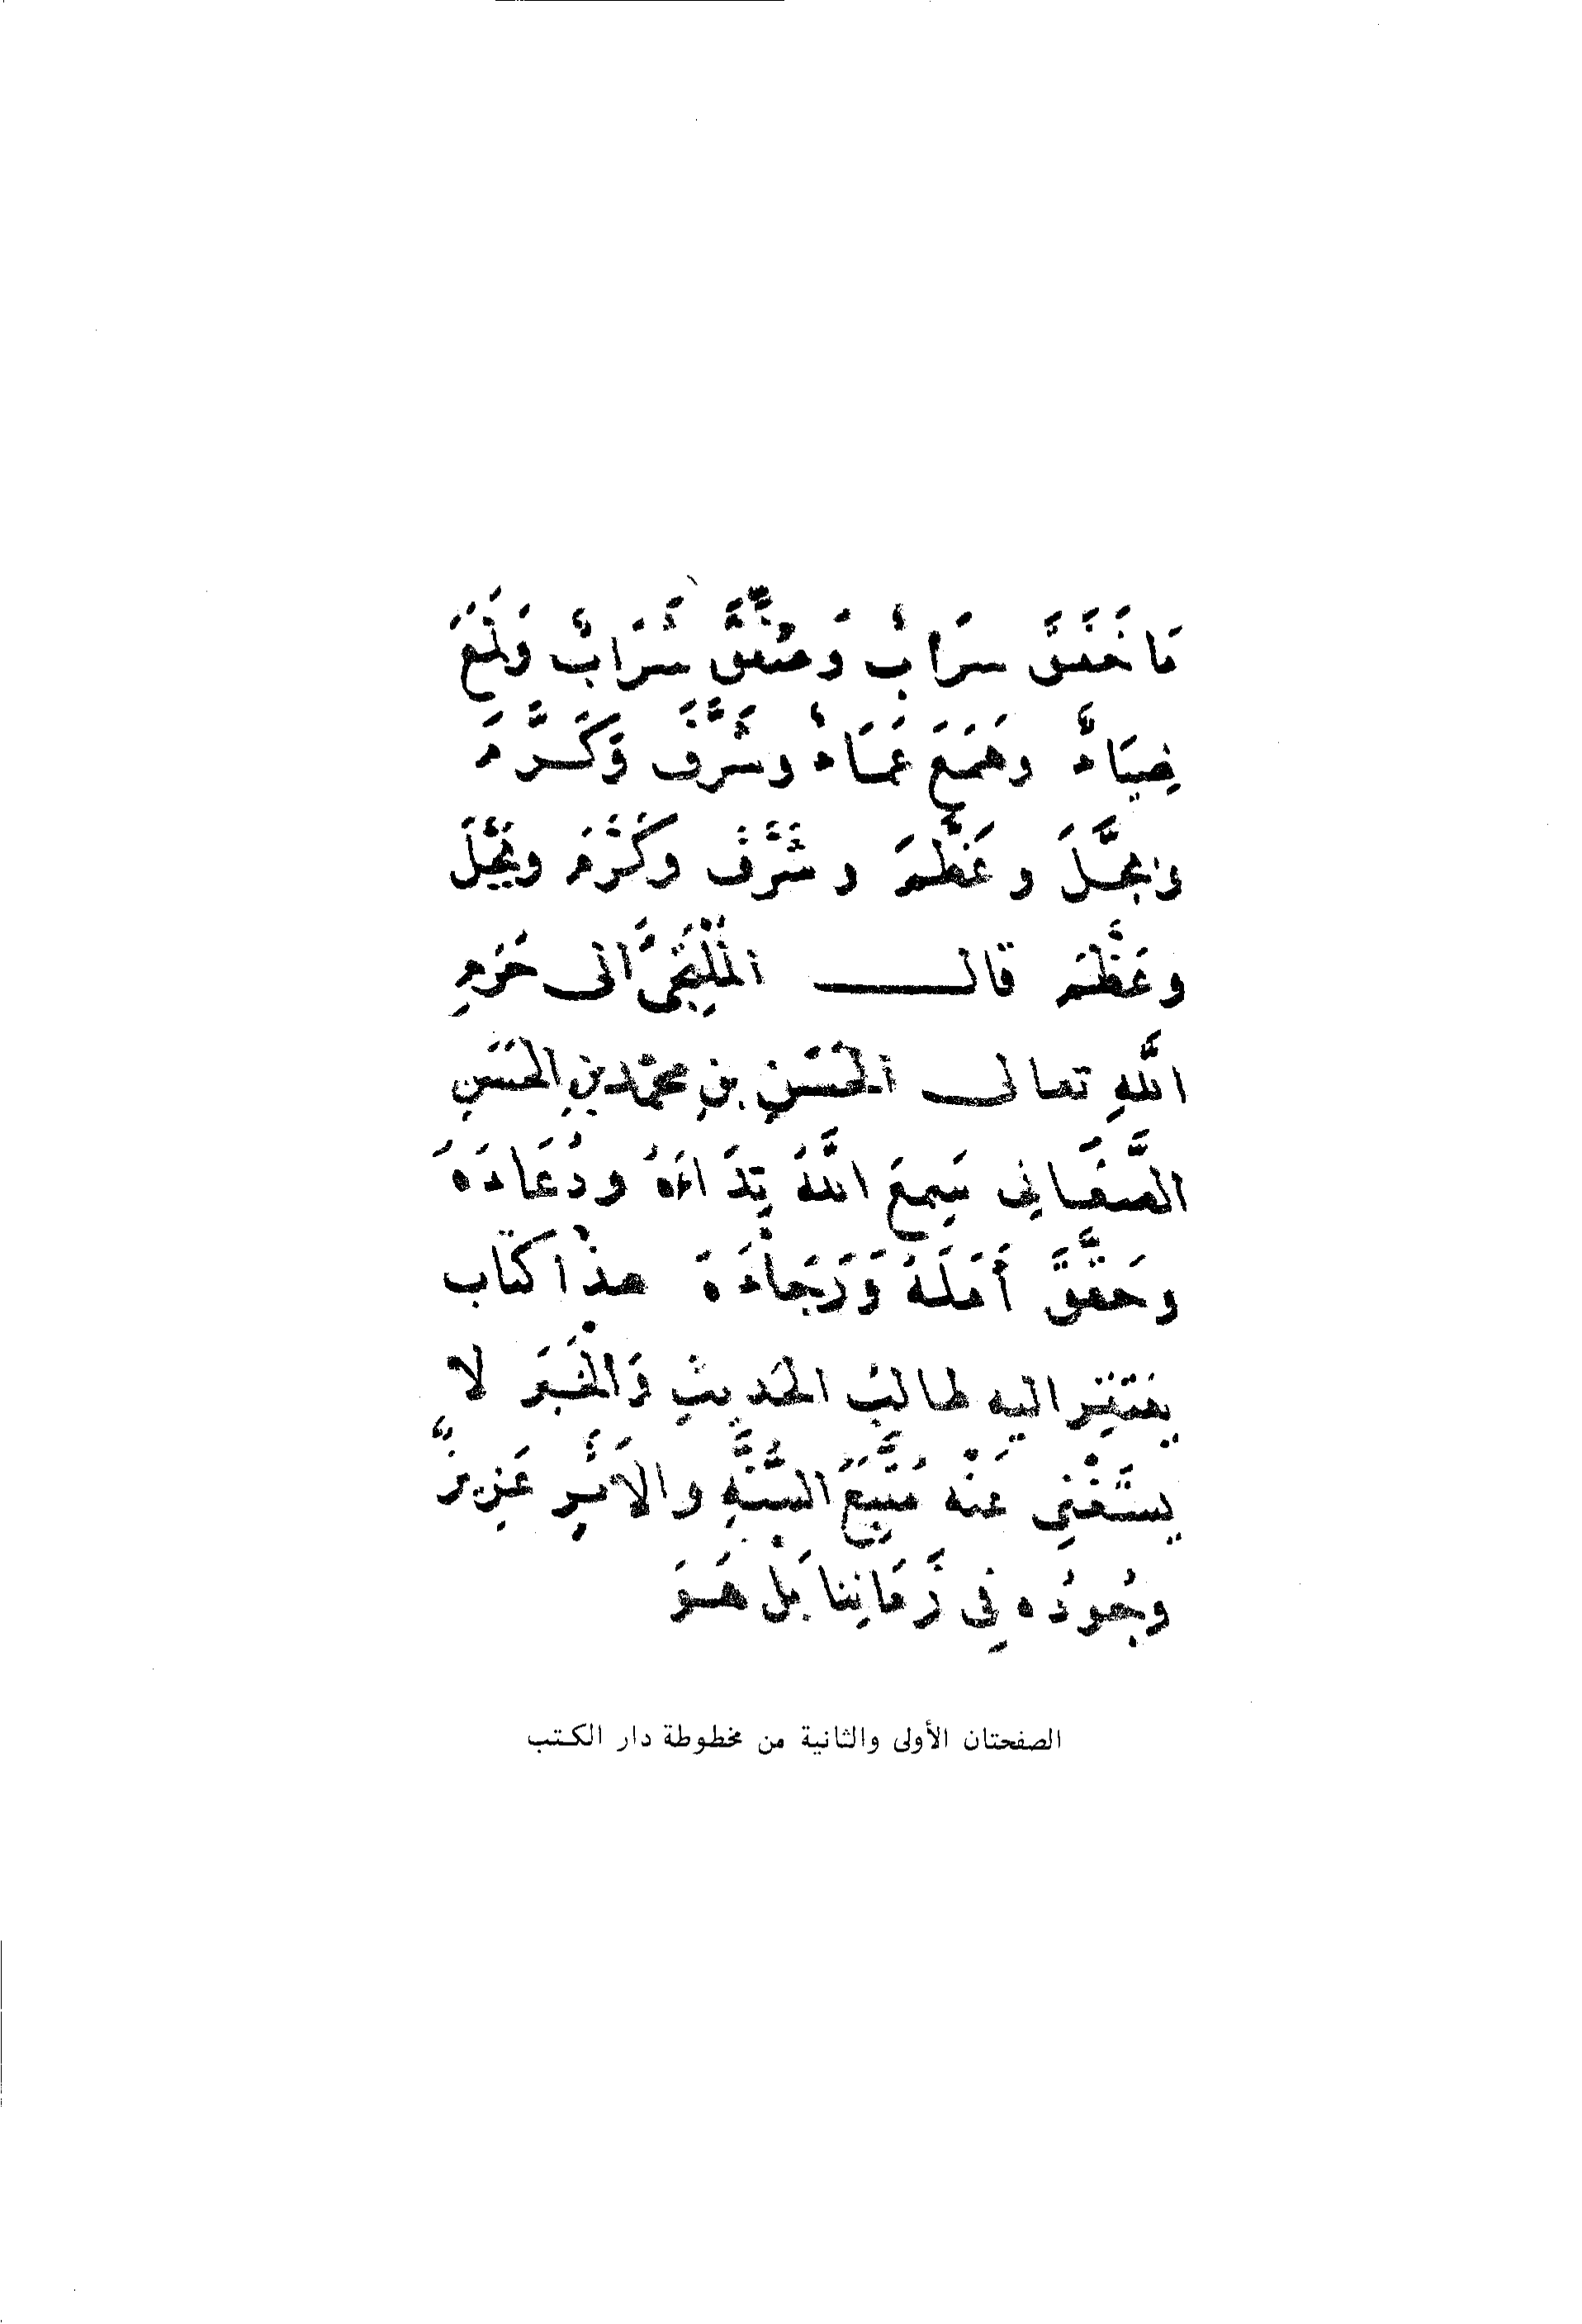 مَا خَفَقَ سَرَابٌ وَصَفَّقَ شَرَابٌ وَلَمَعَ
ضِيَاءٌ وهَمَعَ عَمَاءٌ وشَرَّفَ وَكَرَّمَ
وبَجَّلَ وعَظَّمَ وشَرَّفَ وكَرَّمَ وبَجَّلَ
وعَظَّمَ قال المُلْتَجِئُ الى حَرَمِ
اللهِ تعالى الحَسَنُ بنُ محمّد بنِ الحَسَنِ
الصَّغَانِي سَمِعَ اللَّهُ نِدَاءَهُ ودُعَاءَهُ
وحَقَّقَ أَمَلَهُ وَرَجَاءَهُ هذا كتاب
يفتقر اليه طالبُ الحَديثِ وَالخَبَرِ لا
يستَغْنِي عَنْهُ مُتَتَبِّعُ السُّنَّةِ والأَثَرِ عَزِيزٌ
وجُودُه فِي زَمَانِنا بَلْ هُوَ
الصفحتان الأولى والثانية من مخطوطة دار الكتب